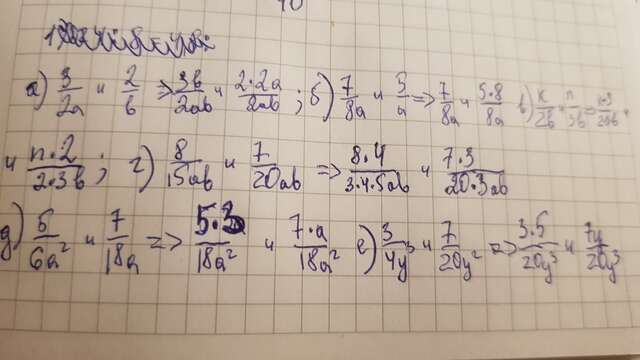 а) 3/2a и 2/b => 3b/2ab и 2·2a/2ab ; б) 7/8a и 5/a => 7/8a и 5·8/8a в) к/2b и n/3b
и n·2/2·3b ; г) 8/15ab и 7/20ab => 8·4/3·4·5ab и 7·3/20·3ab
д) 5/6a² и 7/18a => 5·3/18a² и 7·a/18a² е) 3/4y³ и 7/20y² => 3·5/20y³ и 7y/20y³